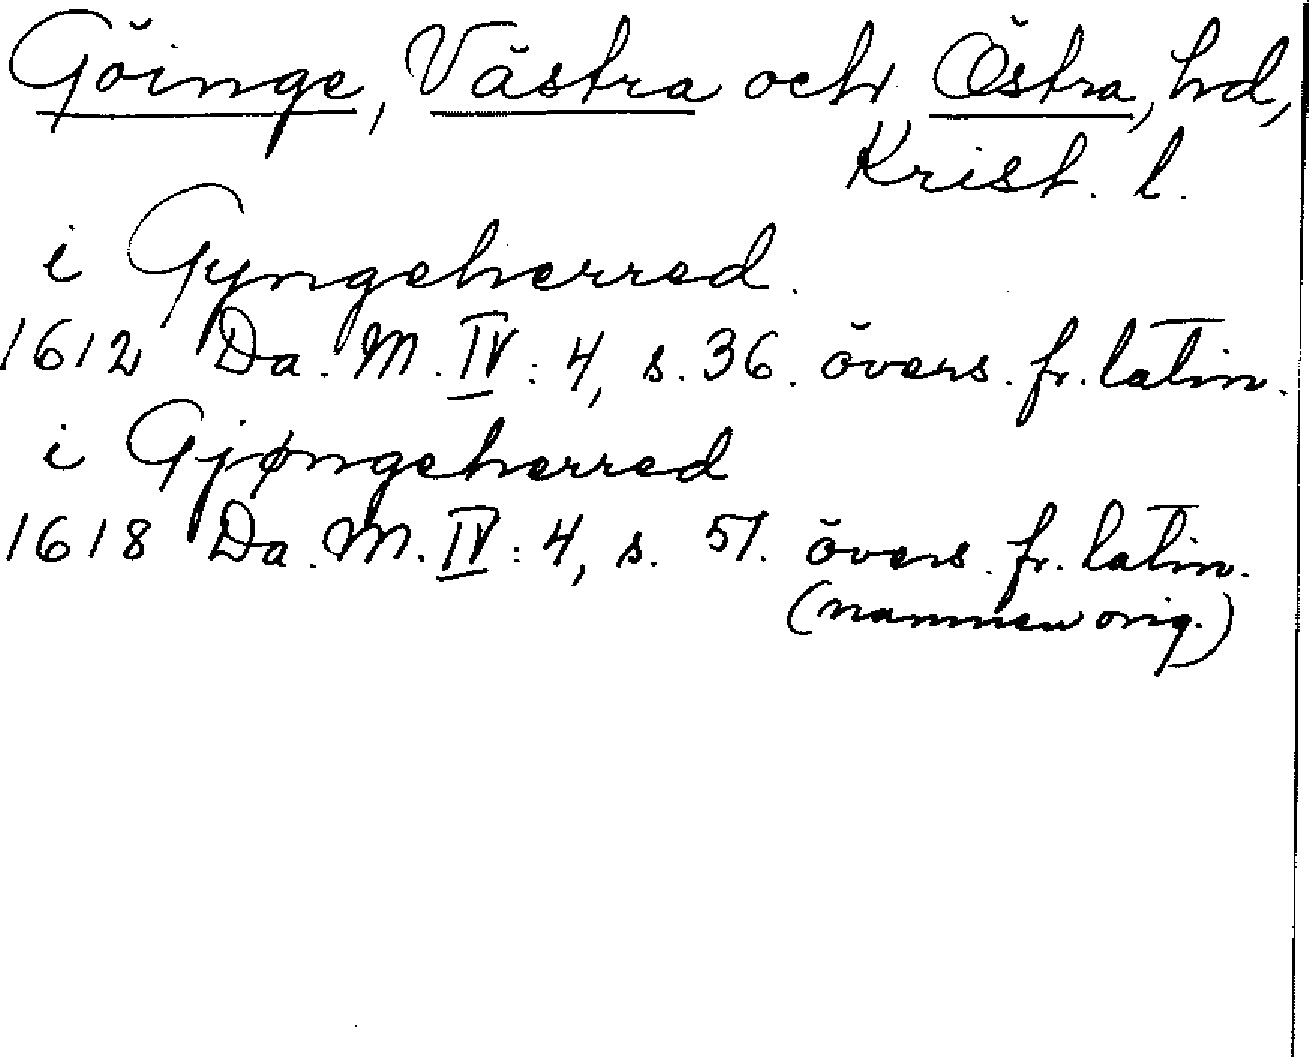 Göinge, Västra och Östra, hd,
Krist. l.
i Gyngeherred.
1612 Da. M. IV: 4, s. 36. övers. fr. latin.
i Gjøngeherred
1618 Da. M. IV: 4, s. 51. övers. fr. latin.
(namnen orig.)